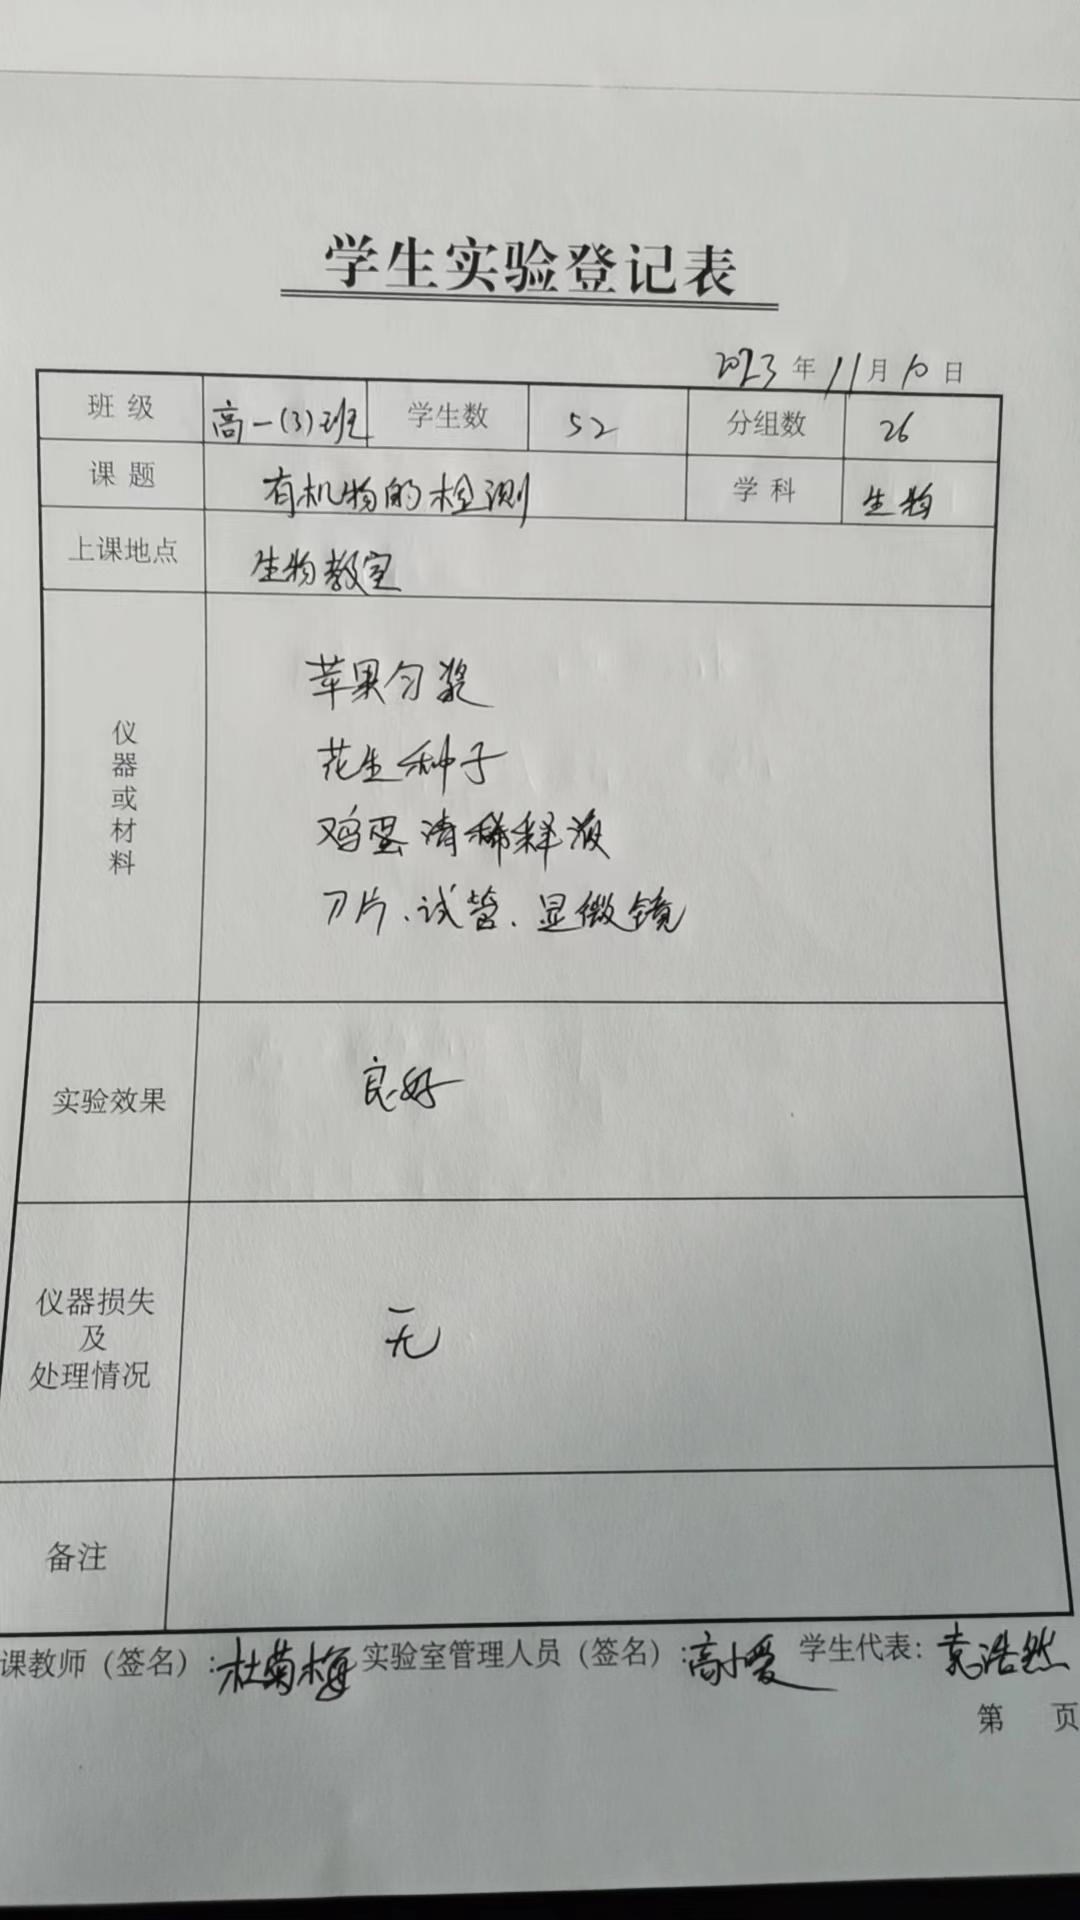 学生实验登记表
2023年11月10日
班级 高一(3)班 学生数 52 分组数 26
课题 有机物的检测 学科 生物
上课地点 生物教室
仪器或材料
苹果匀浆
花生种子
鸡蛋清稀释液
刀片、试管、显微镜
实验效果 良好
仪器损失
及
处理情况
无
备注
课教师（签名）：杜菊梅 实验室管理人员（签名）：高小爱 学生代表：袁浩然
第 页